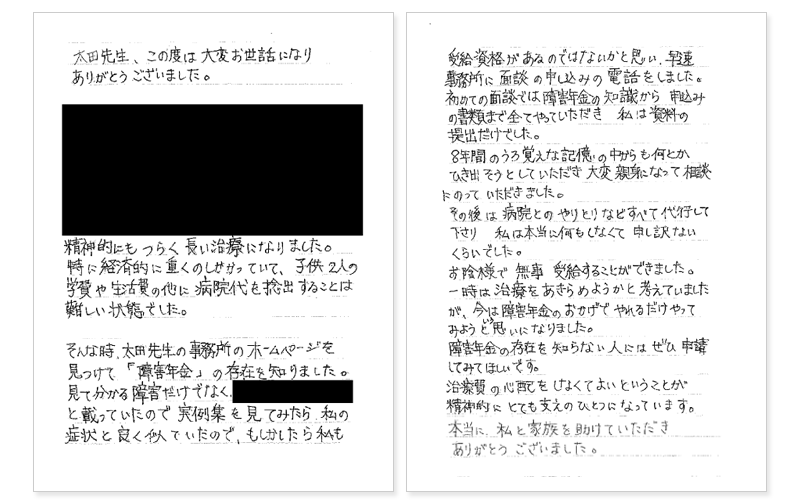 太田先生、この度は大変お世話になり
ありがとうございました。
精神的にもつらく長い治療になりました。
特に経済的に重くのしかかっていて、子供2人の
学費や生活費の他に病院代を捻出することは
難しい状態でした。
そんな時、太田先生の事務所のホームページを
見つけて「障害年金」の存在を知りました。
見て分かる障害だけでなく、
と載っていたので実例集を見てみたら、私の
症状と良く似ていたので、もしかしたら私も
受給資格があるのではないかと思い、早速
事務所に面談の申し込みの電話をしました。
初めての面談では障害年金の知識から申込み
の書類まで全てやっていただき 私は資料の
提出だけでした。
8年間のうろ覚えな記憶の中からも何とか
ひき出そうとしていただき大変親身になって相談
にのっていただきました。
その後は病院とのやりとりなどすべて代行して
下さり 私は本当に何もしなくて申し訳ない
くらいでした。
お陰様で無事受給することができました。
一時は治療をあきらめようかと考えていました
が、今は障害年金のおかげでやれるだけやって
みようという思いになりました。
障害年金の存在を知らない人にはぜひ申請
してみてほしいです。
治療費の心配をしなくてよいということが
精神的にとても支えのひとつになっています。
本当に、私と家族を助けていただき
ありがとうございました。